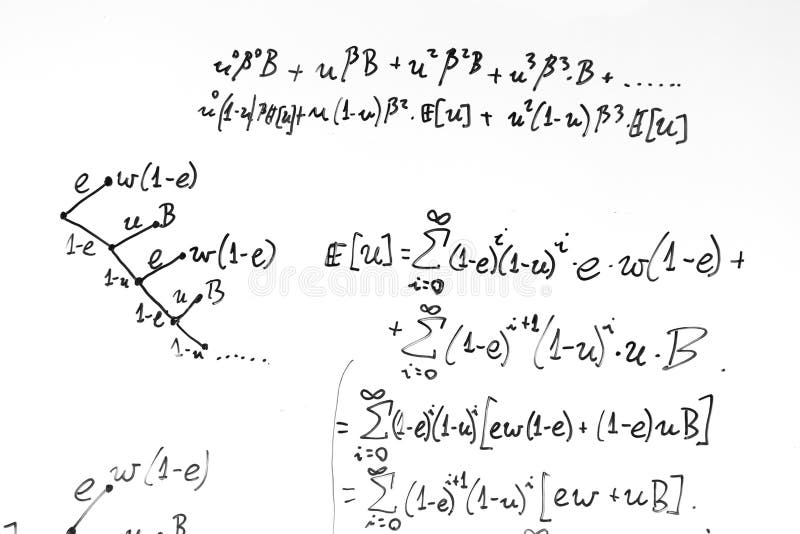 u⁰β⁰B + uβB + u²β²B + u³β³·B + ......
u⁰(1-u)β𝔼[u] + u(1-u)β²·𝔼[u] + u²(1-u)β³·𝔼[u]
e w(1-e)
1-e u B
1-u e w(1-e)
1-e u B
1-u ......
𝔼[u] = ∑_{i=0}^{∞} (1-e)^i (1-u)^i · e · w(1-e) +
+ ∑_{i=0}^{∞} (1-e)^{i+1} (1-u)^i · u · B
= ∑_{i=0}^{∞} (1-e)^i (1-u)^i [ew(1-e) + (1-e)uB]
= ∑_{i=0}^{∞} (1-e)^{i+1} (1-u)^i [ew + uB].
e w(1-e)
u B
dreamstime